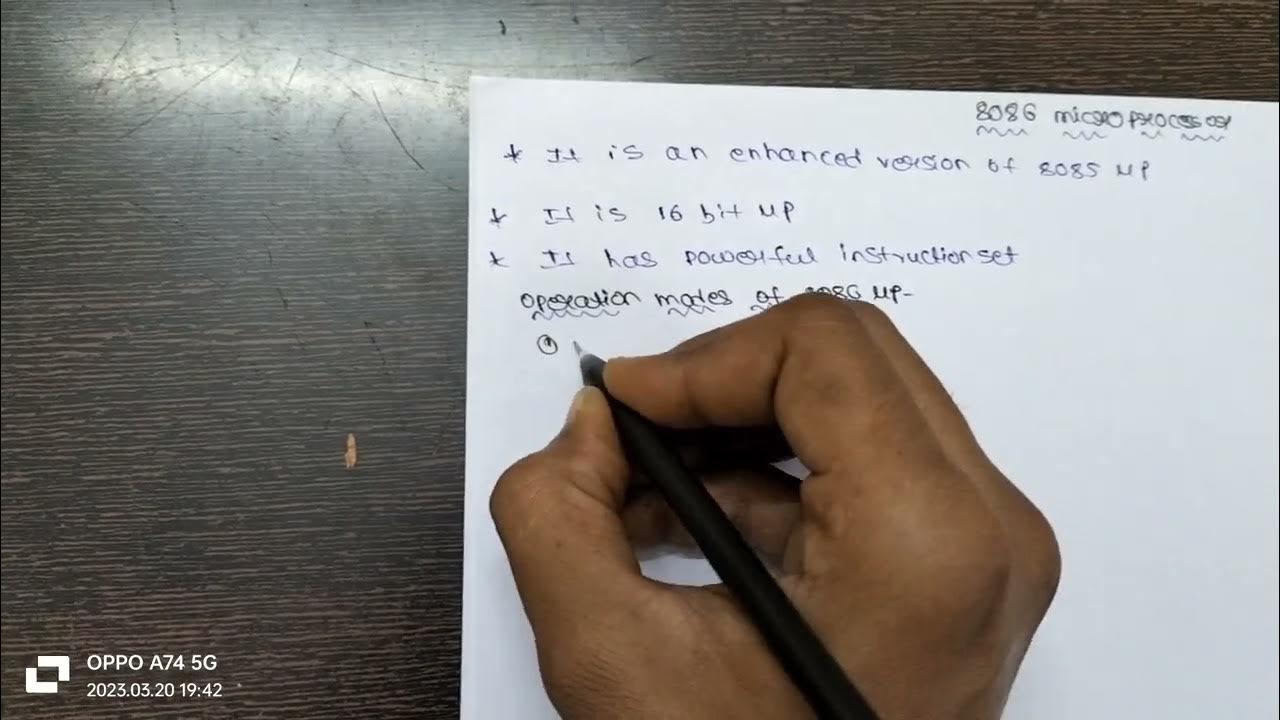 8086 microprocessor
* It is an enhanced version of 8085 MP
* It is 16 bit MP
* It has powerful instruction set
Operation modes of 8086 MP-
①
OPPO A74 5G
2023.03.20 19:42